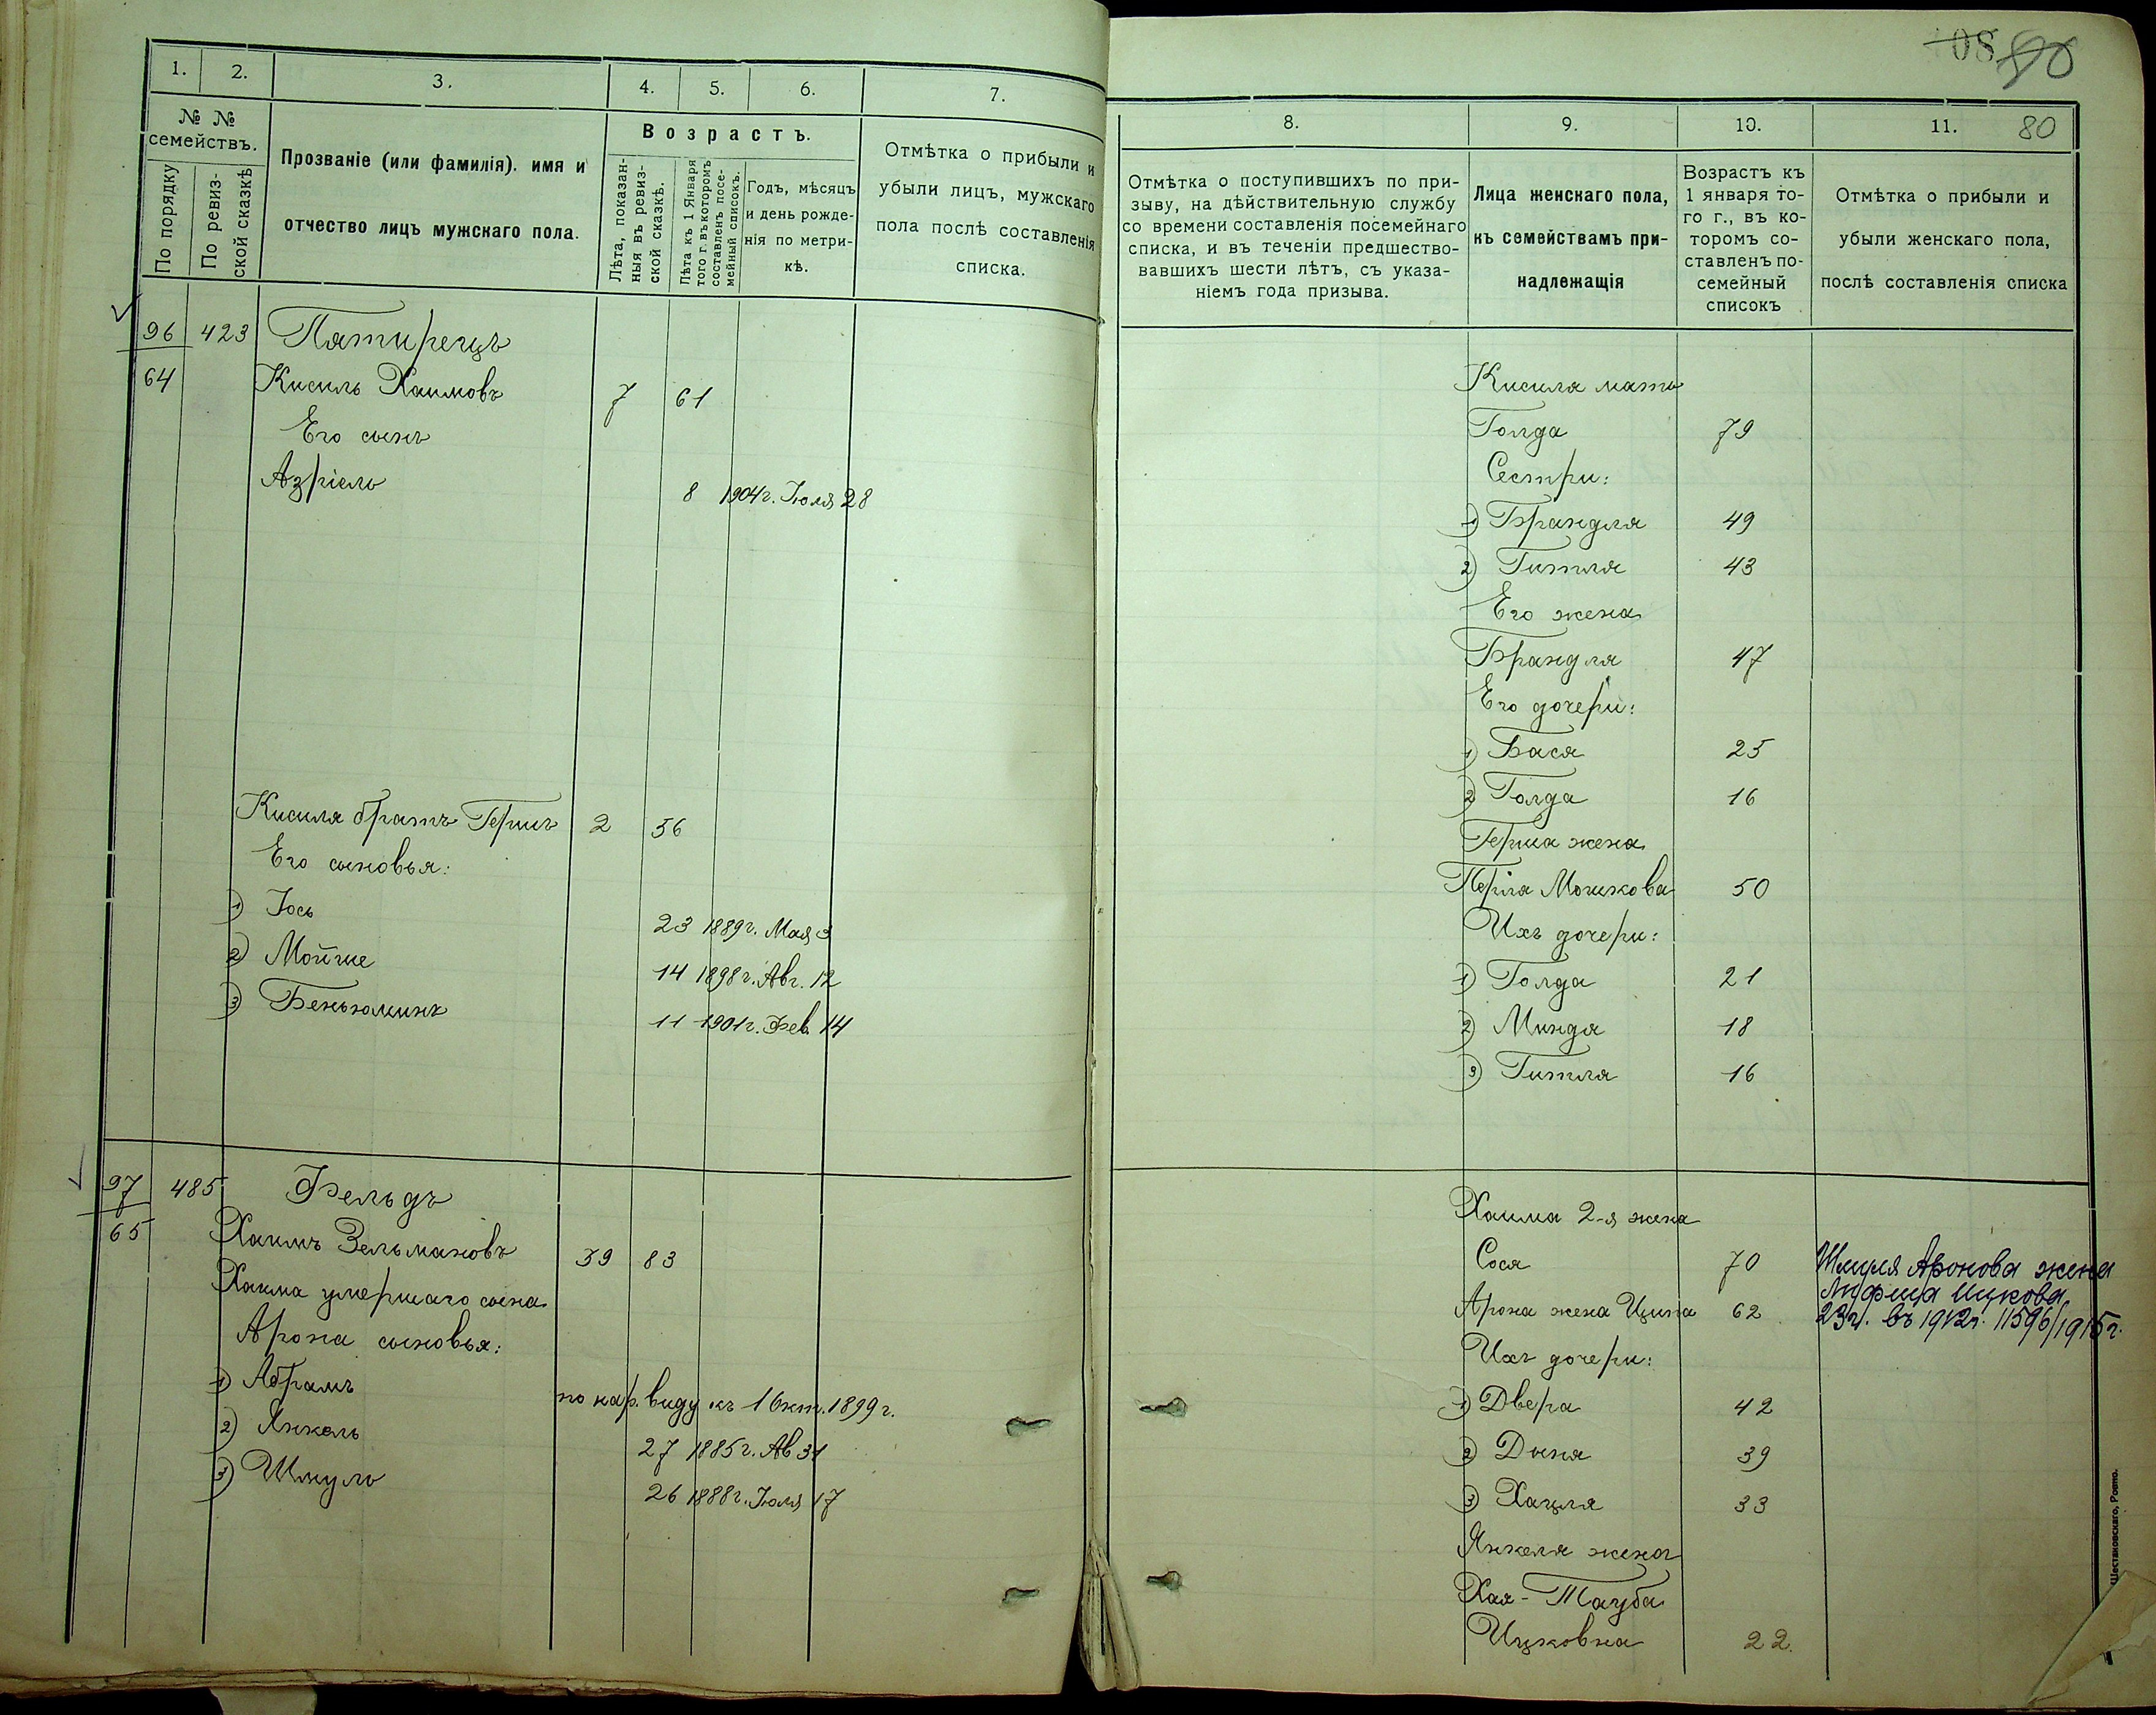 1. 2. 3. 4. 5. 6. 7.
№ № семействъ.
По порядку
По ревиз-
ской сказкѣ
Прозваніе (или фамилія). имя и
отчество лицъ мужскаго пола.
Возрастъ.
Лѣта, показан-
ныя въ ревиз-
ской сказкѣ.
Лѣта къ 1 Января
того г. въ которомъ
составленъ посе-
мейный списокъ.
Годъ, мѣсяцъ
и день рожде-
нія по метри-
кѣ.
Отмѣтка о прибыли и
убыли лицъ, мужскаго
пола послѣ составленія
списка.
96 423 Пятирецъ
64 Кисиль Хаимовъ 7 61
Его сынъ
Азріель 8 1904г. Іюля 28
Кисиля братъ Гершъ 2 56
Его сыновья:
1) Іось 23 1889г. Мая 3
2) Мойше 14 1898г. Авг. 12
3) Беньюминъ 11 1901г. Фев. 14
97 485 Фельдъ
65 Хаимъ Зельмановъ 39 83
Хаима умершаго сына
Арона сыновья:
1) Абрамъ по нар. виду къ 1 Окт. 1899г.
2) Янкель 27 1885г. Ав 31
3) Шмуль 26 1888г. Іюля 17
80
8. 9. 10. 11. 80
Отмѣтка о поступившихъ по при-
зыву, на дѣйствительную службу
со времени составленія посемейнаго
списка, и въ теченіи предшество-
вавшихъ шести лѣтъ, съ указа-
ніемъ года призыва.
Лица женскаго пола,
къ семействамъ при-
надлежащія
Возрастъ къ
1 января то-
го г., въ ко-
торомъ со-
ставленъ по-
семейный
списокъ
Отмѣтка о прибыли и
убыли женскаго пола,
послѣ составленія списка
Кисиля мать
Голда 79
Сестри:
1) Брандля 49
2) Гитля 43
Его жена
Брандля 47
Его дочери:
1) Бася 25
2) Голда 16
Герша жена
Перля Мошкова 50
Ихъ дочери:
1) Голда 21
2) Минда 18
3) Гитля 16
Хаима 2-я жена
Сося 70
Шмуля Аронова жена
Ицкова
23 г. въ 1912г. 11596/1915г.
Арона жена Ципа 62
Ихъ дочери:
1) Двера 42
2) Дыня 39
3) Хацля 33
Янкеля жена
Хая-Тауба
Ицковна 22.
Шестаковскаго, Ровно.